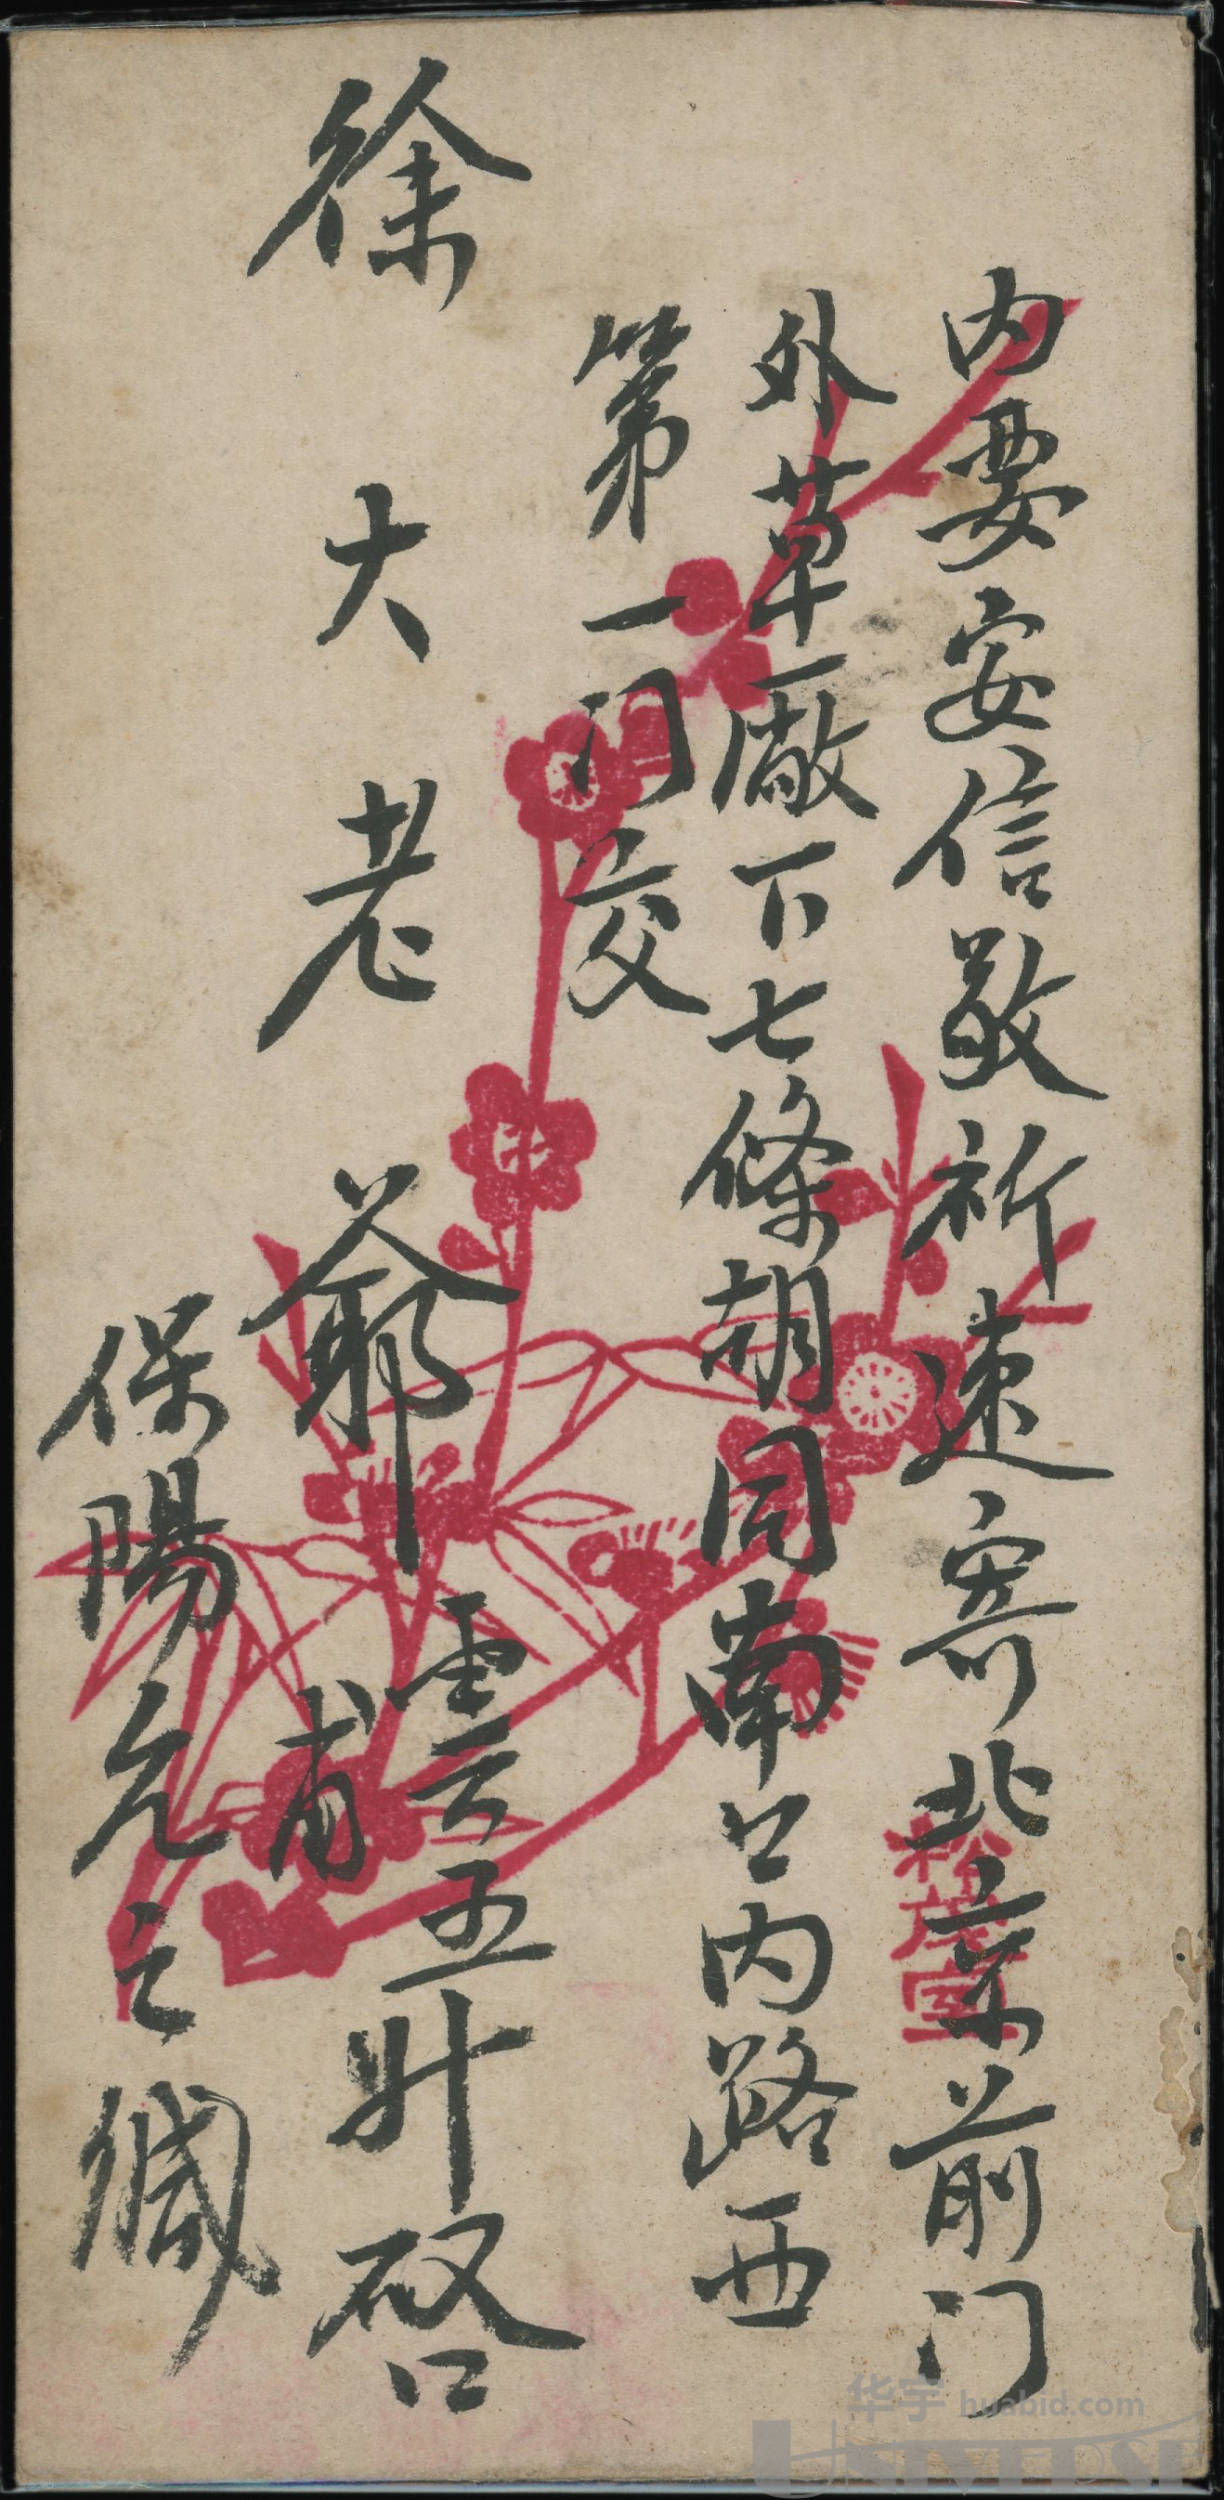 内要安信敬祈速寄北京前门
外草厰下七條胡同南口内路西
第一门交
徐大老爺雲五甫升啓
保陽允之緘
松茂室
华宇 huabid.com
UNIVERSE